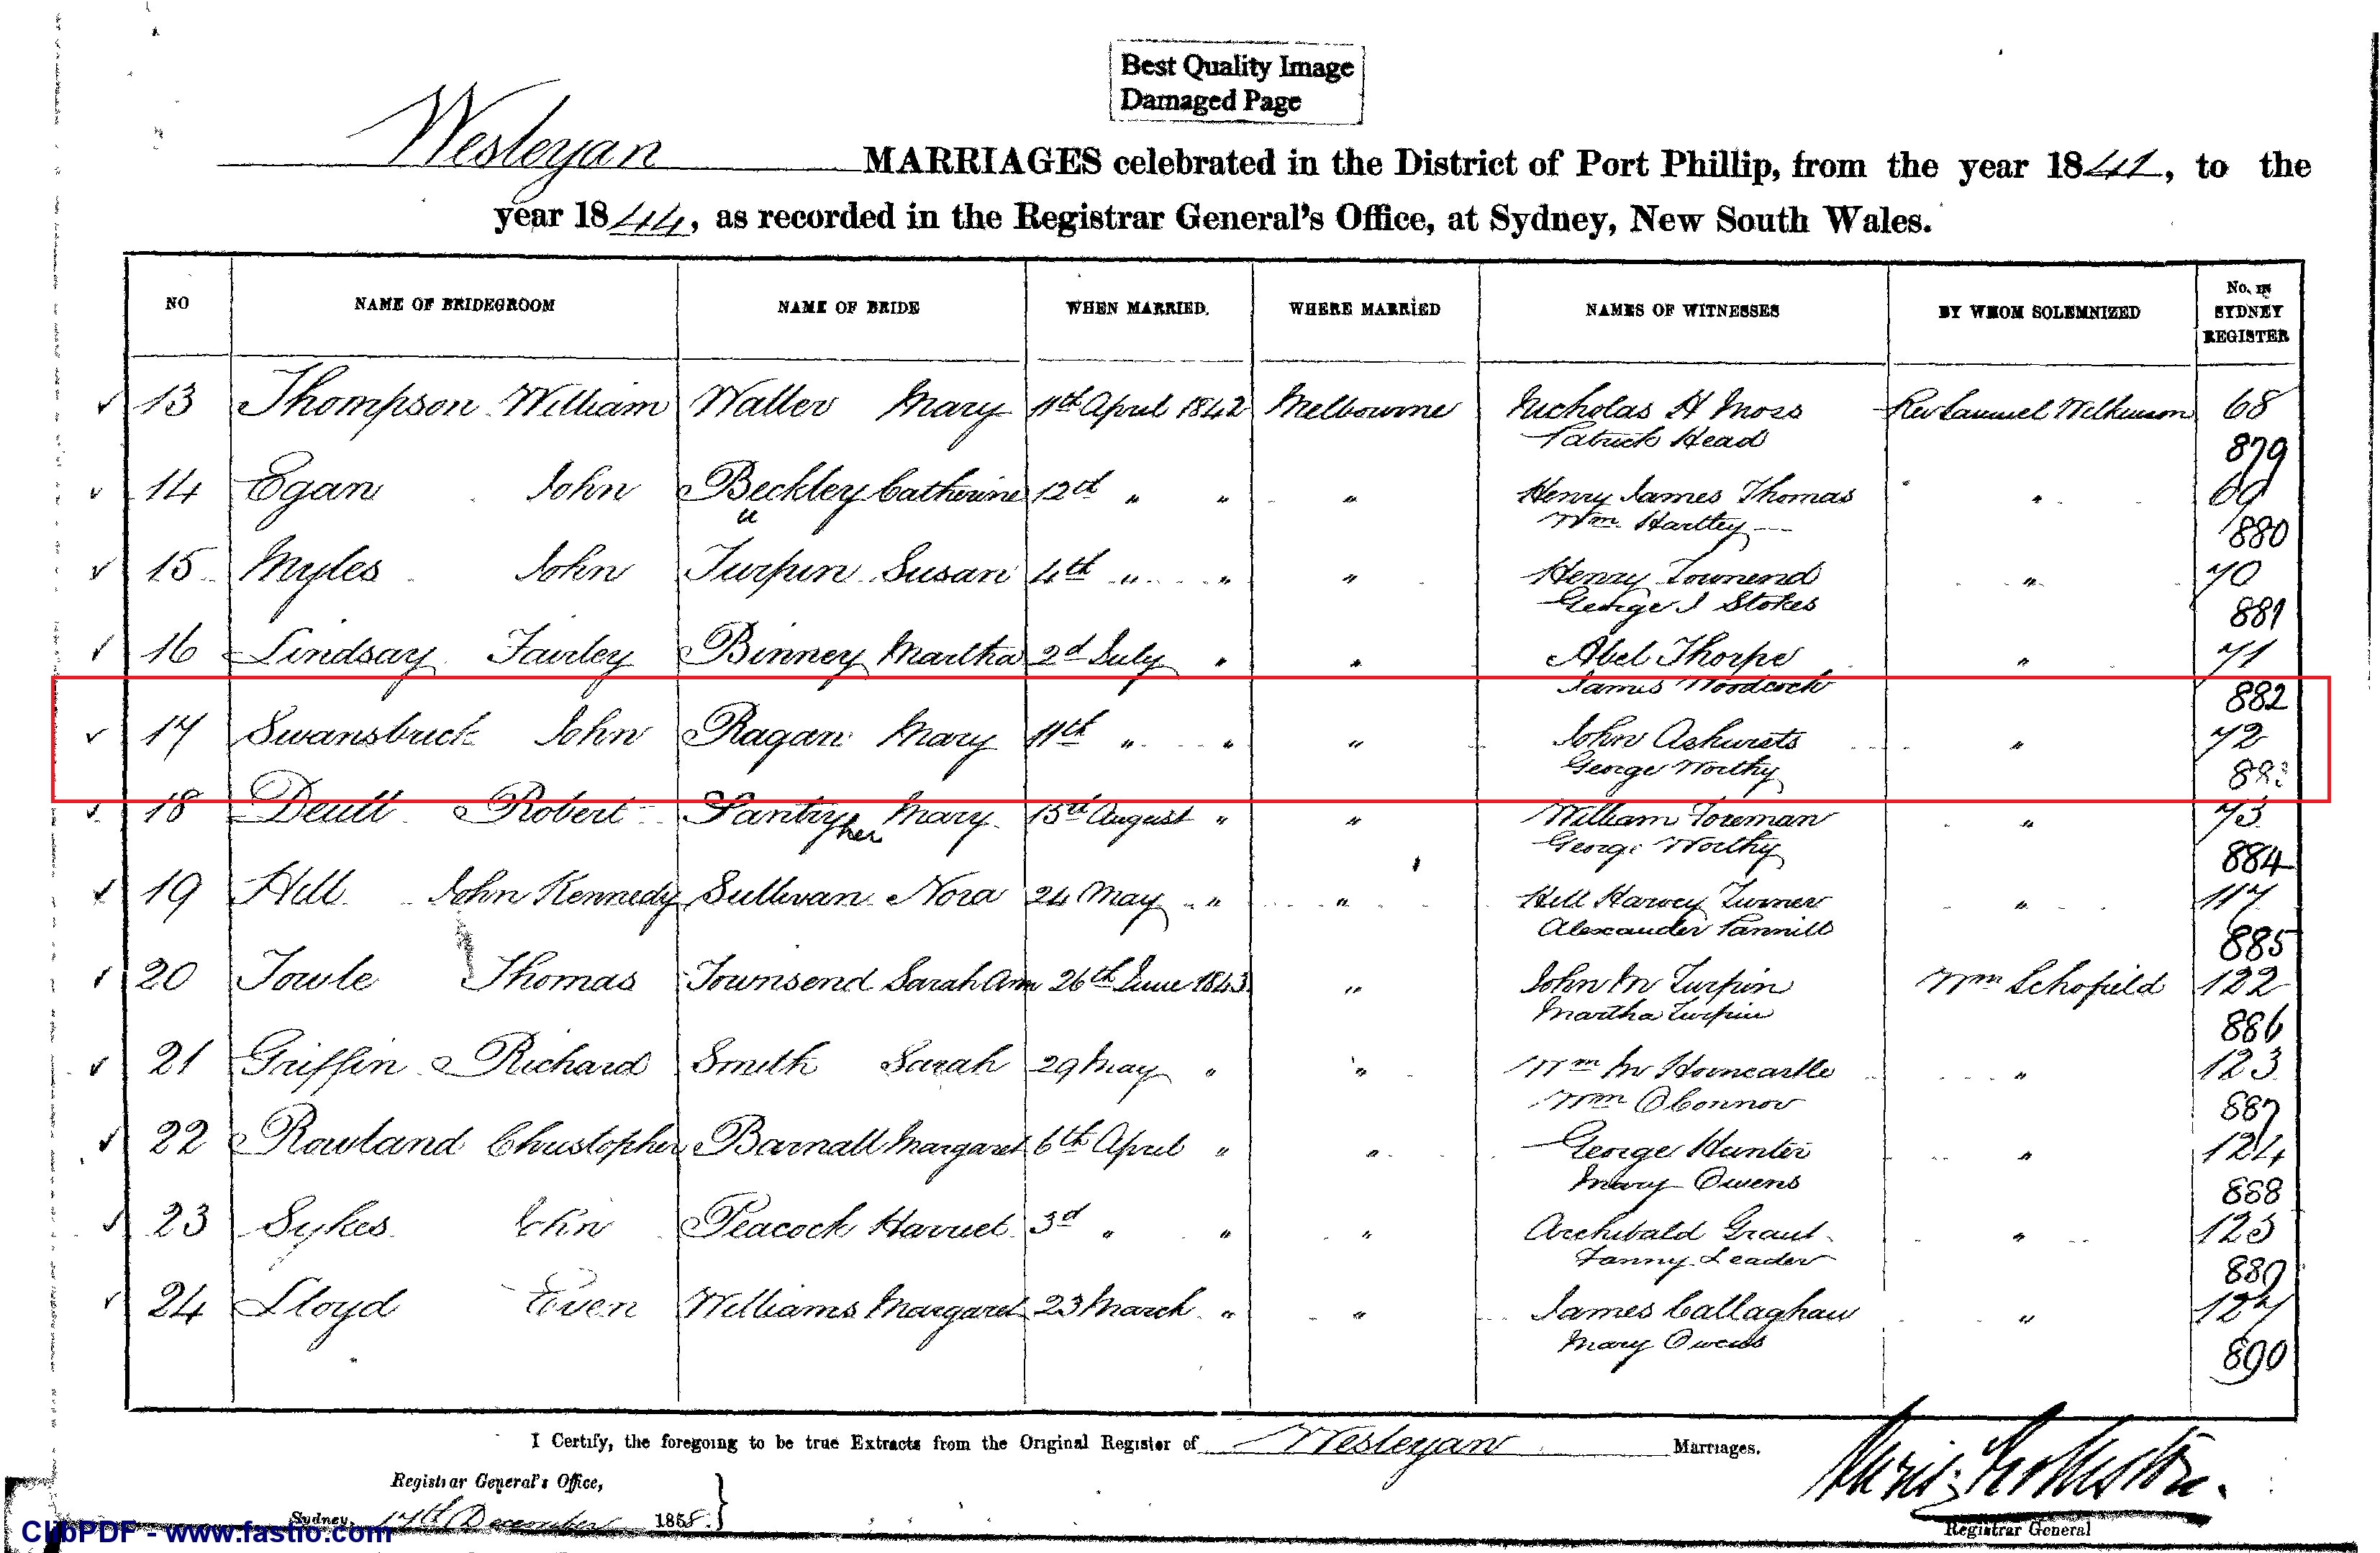 Best Quality Image
Damaged Page
Wesleyan MARRIAGES celebrated in the District of Port Phillip, from the year 1841, to the
year 1844, as recorded in the Registrar General's Office, at Sydney, New South Wales.
NO NAME OF BRIDEGROOM NAME OF BRIDE WHEN MARRIED. WHERE MARRIED NAMES OF WITNESSES BY WHOM SOLEMNIZED No. IN SYDNEY REGISTER
13 Thompson William Walter Mary 11th April 1842 Melbourne Nicholas H Moss Rev Samuel Wilkinson 68
Patrick Head 879
14 Egan John Beckley Catherine 12th " " " Henry James Thomas " 69
u Wm. Hartley 880
15 Myles John Turpin Susan 4th " " " Henry Townend " 70
George J Stokes 881
16 Lindsay Fairley Binney Martha 2d July " " Abel Thorpe " 71
James Woodcock 882
17 Swansbrick John Ragan Mary 11th " " " John Ashursts " 72
George Worthy 883
18 Robert Pantry Mary 15th August " " William Foreman " 73
her George Worthy 884
19 Hill John Kennedy Sullivan Nora 24 May " " Hill Harvey Turner " 117
Alexander 885
20 Towle Thomas Townsend Sarah Ann 26th June 1843 " John M Turpin Wm Schofield 122
Martha Turpin 886
21 Griffin Richard Smith Sarah 29 May " " Wm M Horncastle " 123
Wm OConnor 887
22 Rowland Christopher Barnall Margaret 6th April " " George Hunter " 124
Mary Owens 888
23 Sykes John Peacock Harriet 3d " " " Archibald Grant " 125
Fanny Leader 889
24 Lloyd Even Williams Margaret 23 March " " James Callaghan " 127
Mary Owens 890
I Certify, the foregoing to be true Extracts from the Original Register of Wesleyan Marriages.
Registrar General's Office,
Sydney, 17th December 1855.
Registrar General
ClibPDF - www.fastio.com